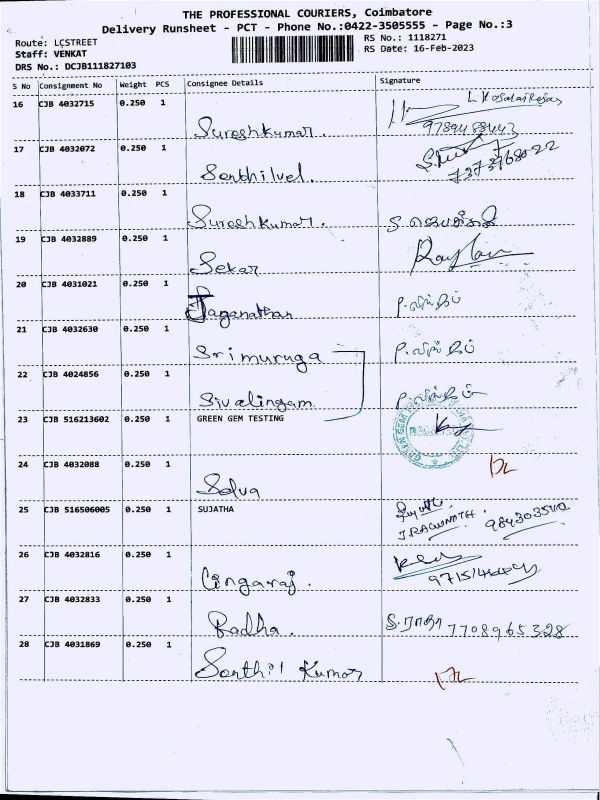 THE PROFESSIONAL COURIERS, Coimbatore
Delivery Runsheet - PCT - Phone No.:0422-3505555 - Page No.:3
Route: LCSTREET
RS No.: 1118271
Staff: VENKAT
RS Date: 16-Feb-2023
DRS No.: DCJB111827103
S No Consignment No Weight PCS Consignee Details Signature
16 CJB 4032715 0.250 1
Sureshkumar.
17 CJB 4032072 0.250 1
Senthilvel. 7373768022
18 CJB 4033711 0.250 1
Sureshkumar.
19 CJB 4032889 0.250 1
Sekar
20 CJB 4031021 0.250 1
Jaganathan
21 CJB 4032630 0.250 1
Srimuruga
22 CJB 4024856 0.250 1
Sivalingam
23 CJB 516213602 0.250 1 GREEN GEM TESTING
24 CJB 4032088 0.250 1
Selva
25 CJB 516506005 0.250 1 SUJATHA
J.RAGUNATH.
26 CJB 4032816 0.250 1
Lingaraj.
27 CJB 4032833 0.250 1
Radha. S.ராதா 7708965328
28 CJB 4031869 0.250 1
Senthil Kumar